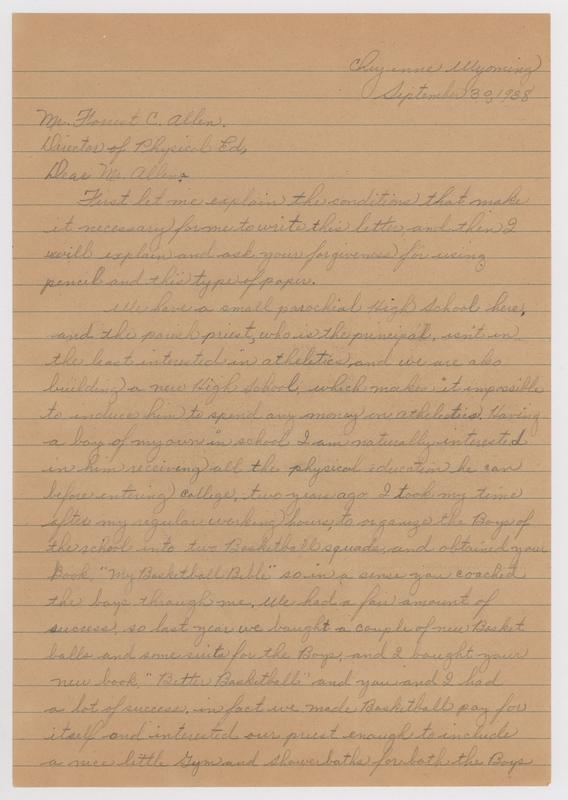 Cheyenne Wyoming
September 30, 1938
Mr. Forrest C. Allen.
Director of Physical Ed,
Dear Mr. Allen:
First let me explain the conditions that make
it necessary for me to write this letter, and then I
will explain and ask your forgiveness for using
pencil and this type of paper.
We have a small parochial High School here,
and the parish priest, who is the principal, isn't in
the least interested in atheletics, and we are also
building a new High School, which makes it impossible
to induce him to spend any money on atheletics. Having
a boy of my own in school I am naturally interested
in him receiving all the physical education he can
before entering College, two years ago I took my time
after my regular working hours, to organize the Boys of
the school into two Basketball squads, and obtained your
Book, "My Basketball Bible" so in a sense you coached
the boys through me. We had a fair amount of
success, so last year we bought a couple of new Basket
balls and some suits for the Boys, and I bought your
new book, "Better Basketballs" and you and I had
a lot of success, in fact we made Basketball pay for
itself and interested our priest enough to include
a nice little Gym and showerbaths for both the Boys